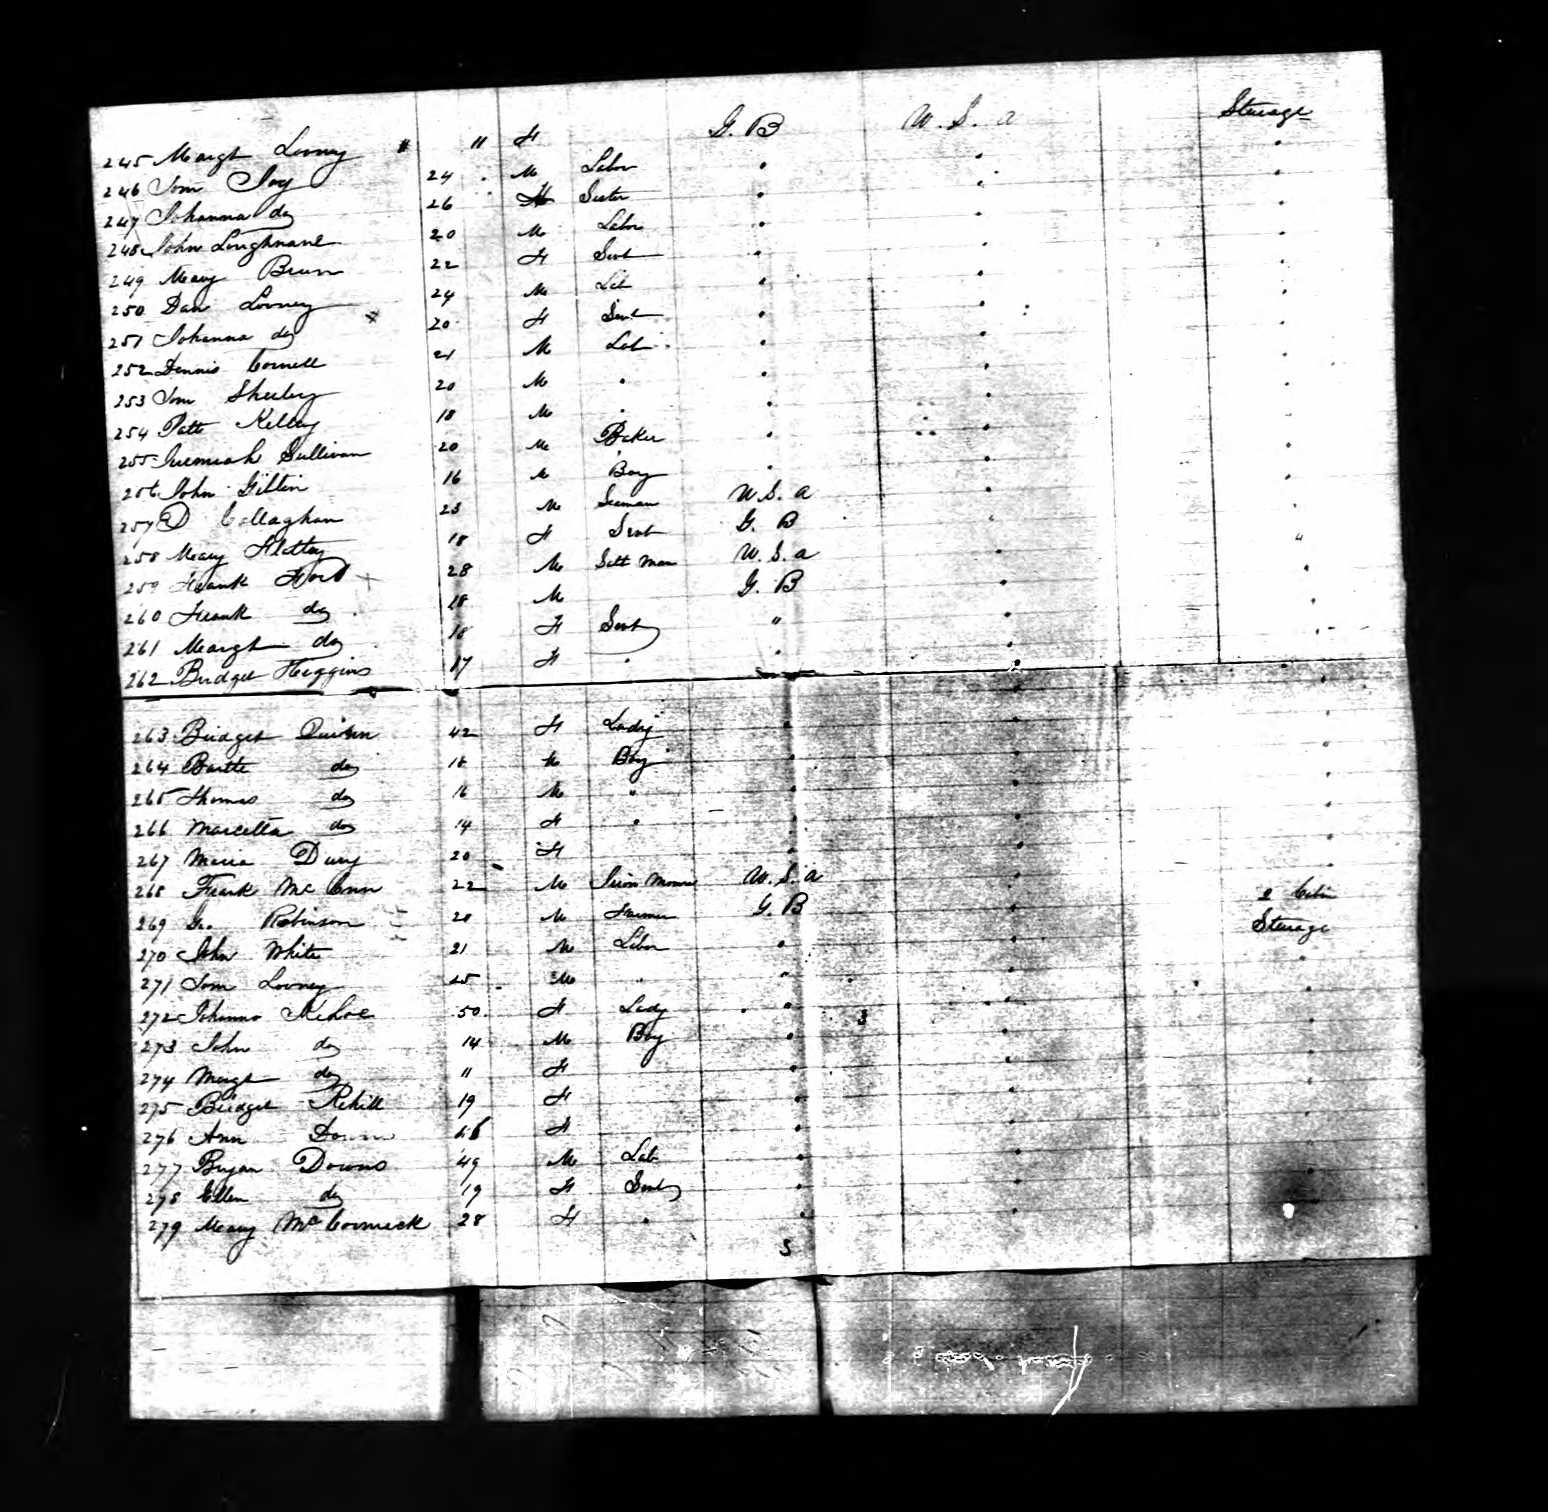 245 Margt Looney " 11 F G. B U. S. a Sterage
246 Tom Joy 24 M Labor " " "
247 Johanna do 26 Sister " " "
248 John Loughnane 20 M Labor " " "
249 Mary 22 F Servt " " "
250 Dan Looney 24 M Lab " " "
251 Johanna do 20 F Servt " " "
252 Dennis Connell 21 M Lab " " "
253 Tom Sheehy 20 M " " " "
254 Patt Kelley 18 M " " " "
255 Jeremiah Sullivan 20 M Baker " " "
256 John Giltin 16 M Boy " " "
257 D Callaghan 23 M Seaman U. S. a " "
258 Mary Slattery 18 F Servt G. B " "
259 Frank Ford 28 M Salt Man U. S. a " "
260 Frank do 18 M G. B " "
261 Margt do 18 F Servt " " "
262 Bridget Higgins 17 F " " " "
263 Bridget 42 F Lady " " "
264 Bartt do 18 M Boy " " "
265 Thomas do 16 M " " " "
266 Marcella do 14 F " " " "
267 Maria 20 F " " "
268 Frank Mc Cann 22 M Iron U. S. a " 2 Cabin
269 Geo. Robinson 20 M Farmer G. B " Sterage
270 John White 21 M Labor " " "
271 Tom Looney 25 M " " " "
272 Johanna Kehoe 50 F Lady " " "
273 John do 14 M Boy " " "
274 Margt do 11 F " " "
275 Bridget Rehill 19 F " " "
276 Ann F " " "
277 Bryan Downs 49 M Lab " " "
278 Ellen do 19 F Servt " " "
279 Mary McCormick 28 F " " "